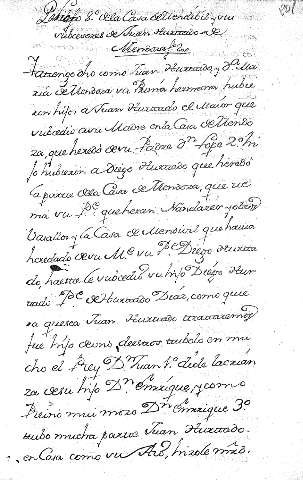 de la Casa de Mendibil y sus
subcesores de Juan Hurtado de
Mendoza
Ya tengo dho como Juan Hurtado y Dª Ma
ria de Mendoza su Prima hermana hubie
un hijo a Juan Hurtado el Maior que
subcedio a su Madre en la Casa de Mendo
za, que heredó de su Padre Dn Lope 2º hi
jo hubieron a Diego Hurtado que heredó
la parte de la Casa de Mendoza, que ve
nia su Pe que heran Nandares y otros
Vasallos y la Casa de Mendivil que havia
heredado de su Me su Pe Diego Hurta
do, haeste le subcedió su hijo Diego Hur
tado Pe de Hurtado Diaz, como quie
ra que sea Juan Hurtado
fue hijo de uno destos tubolo en mu
cho el Rey Dn Juan 1º diole la crian
za de su hijo Dn Enrrique, y como
Reinó mui mozo Dn Enrrique 3º
tubo mucha parte Juan Hurtado
en Casa como su Aio, hizole mrd.